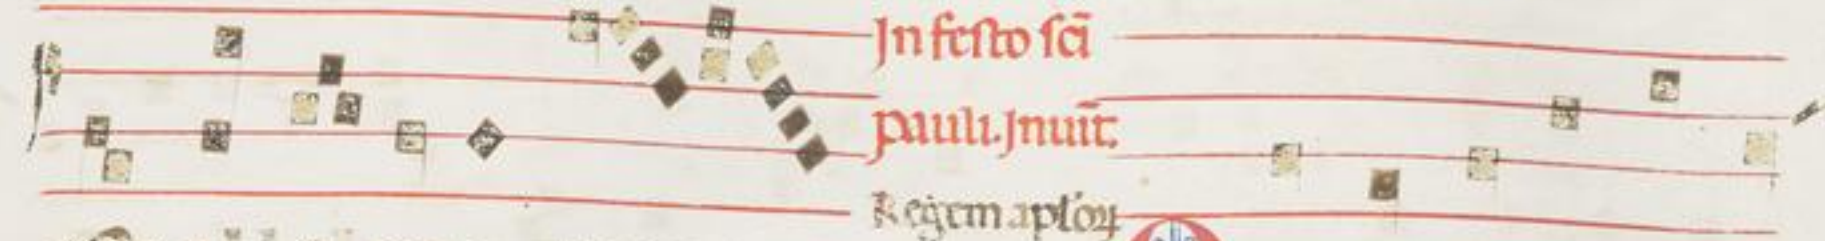 In festo sc̄i
pauli. Inuit̄.
Regem apl'oꝝ